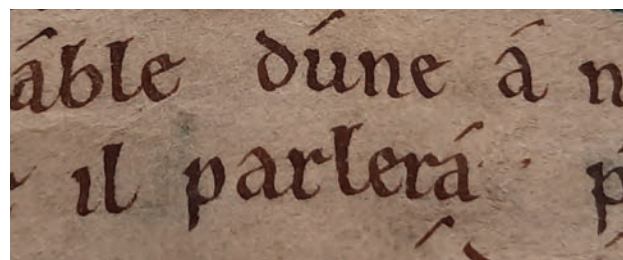 áble dúne á n
il parlerá · p